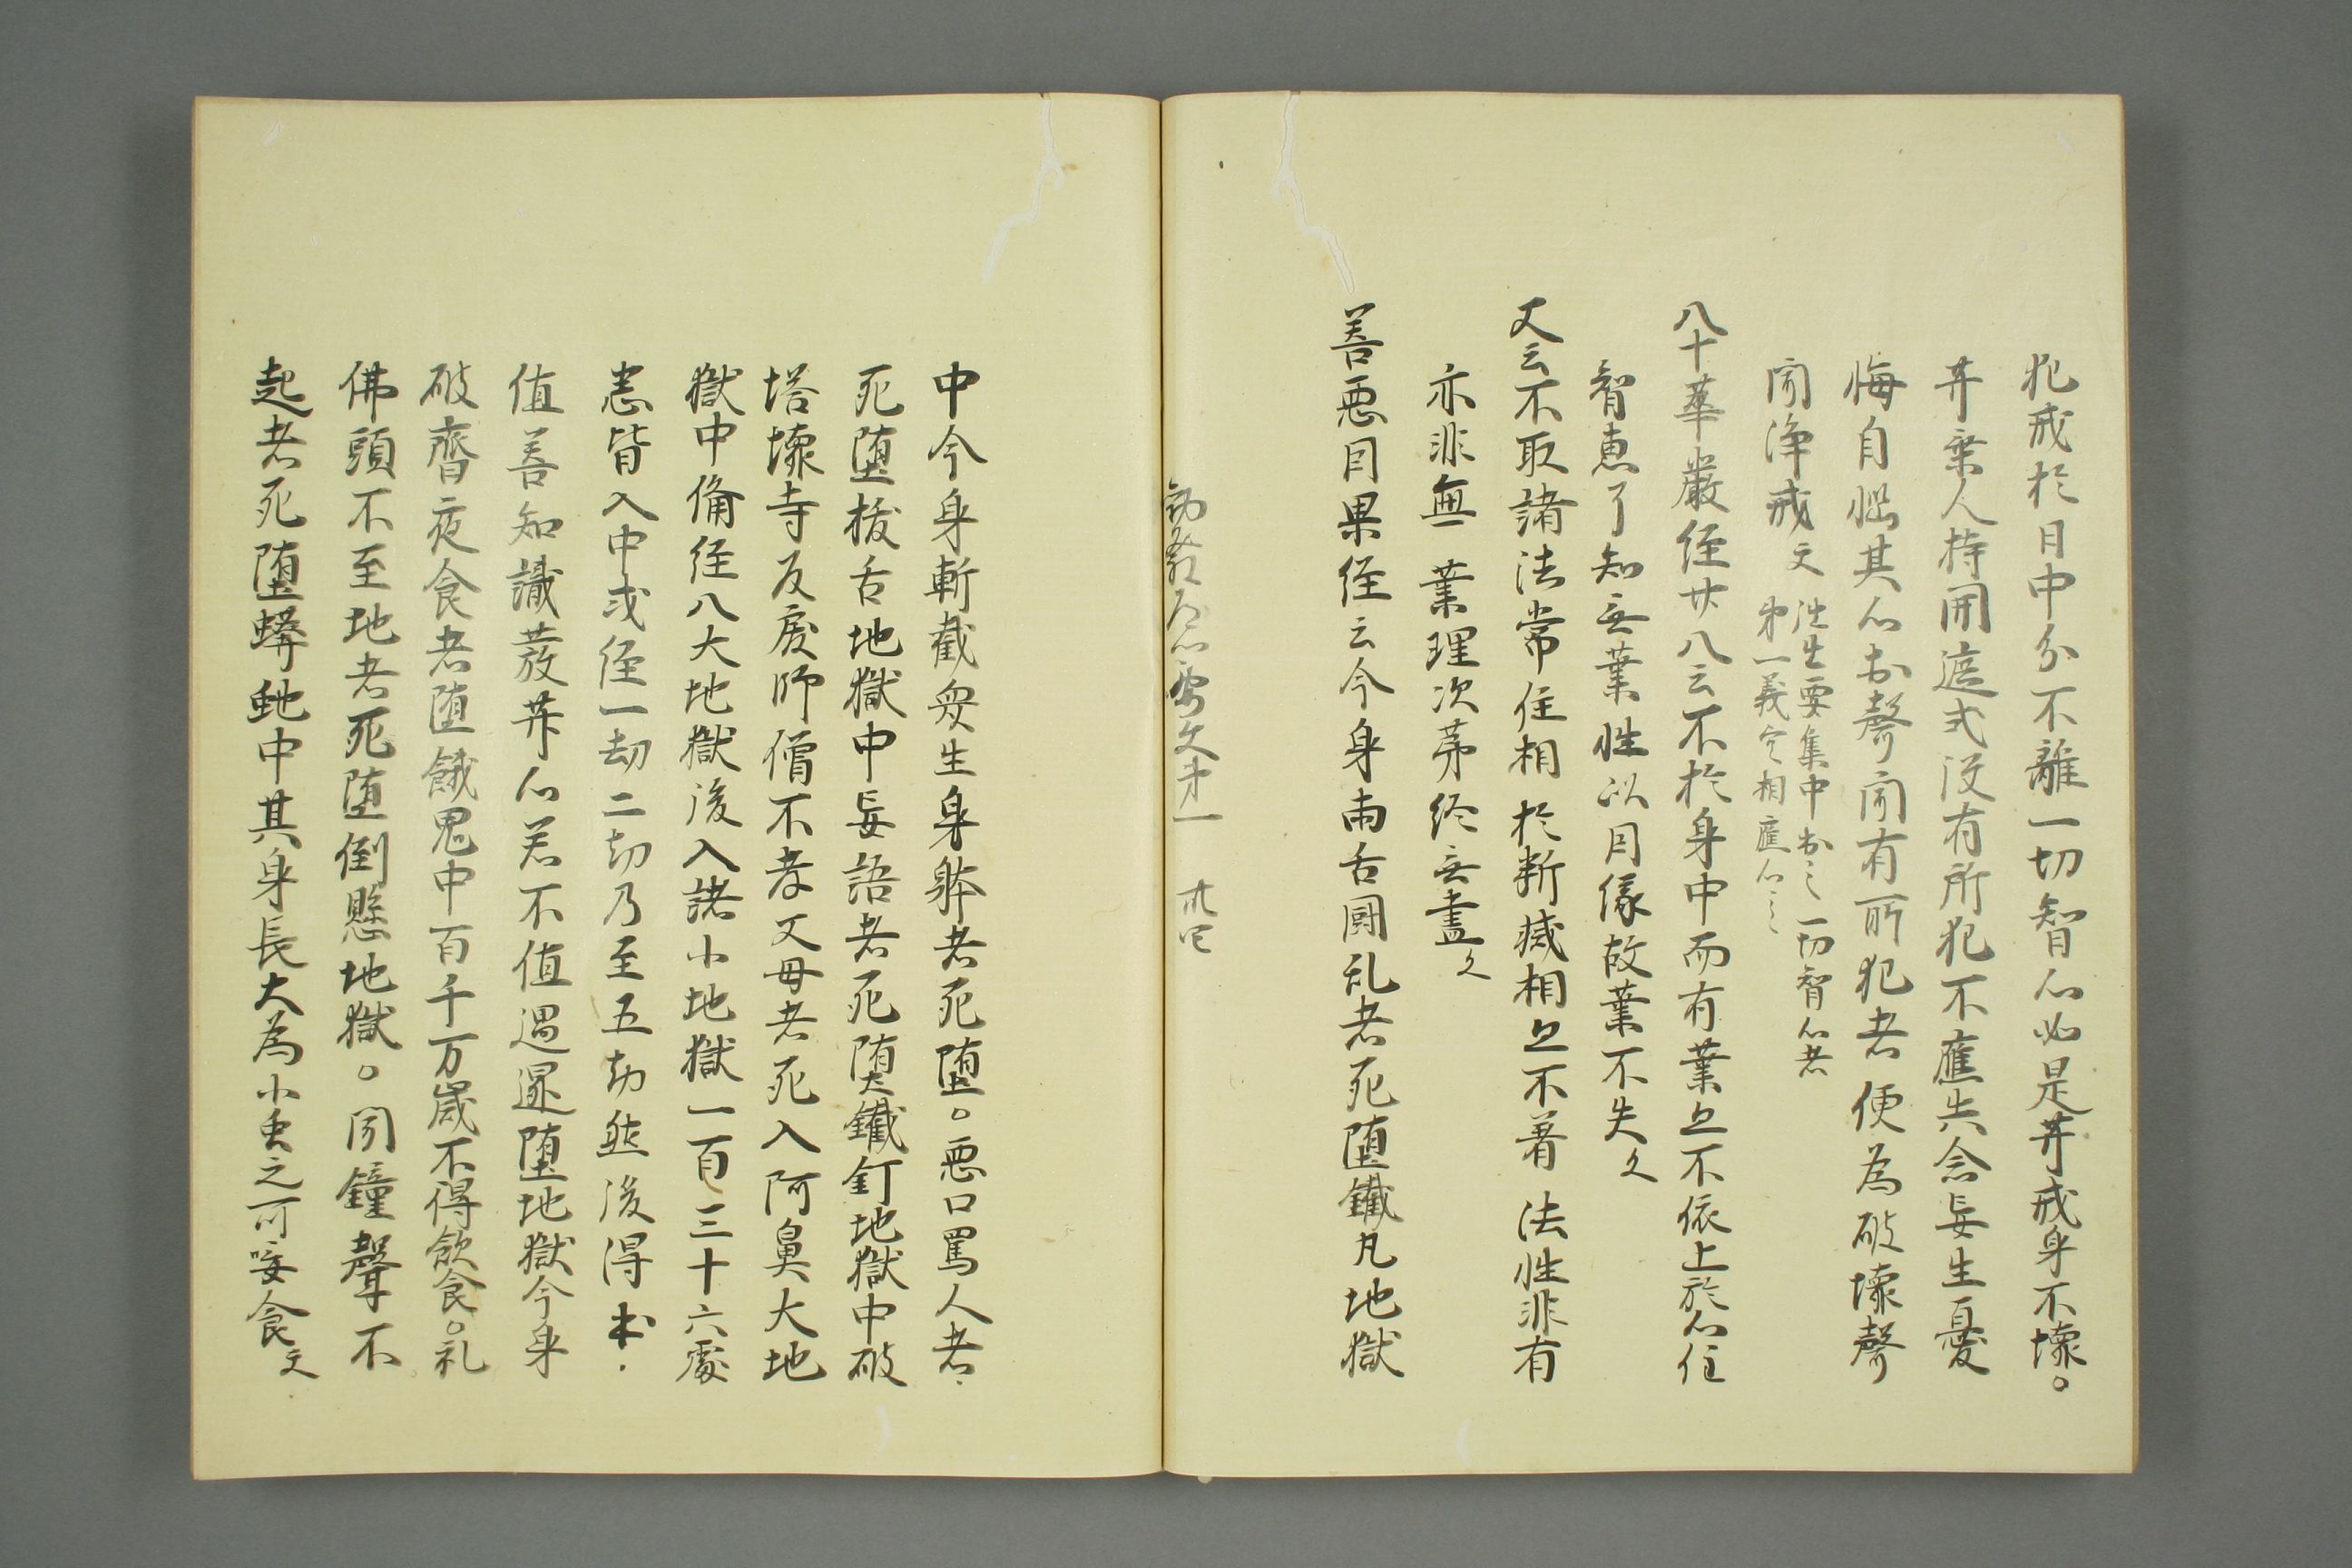 犯戒於日中分不離一切智心必是井戒身不壞。
井乗人持開遮式設有所犯不應失念妄生憂
悔自惱其心於聲聞有所犯者便為破壞聲
聞淨戒文
一切智心者
第一義空相應心
八十華嚴経廿八云不於身中而有業亦不依止於心住
智恵了知無業性以因縁故業不失文
又云不取諸法常住相於断滅相亦不著法性非有
亦非無業理次第終無盡文
善悪因果経云今身両舌闘乱者死堕鐵丸地獄
要文第一
中今身斬截衆生身躰者死堕。悪口罵人者
死堕抜舌地獄中妄語者死堕鐵釘地獄中破
塔壞寺反戻師僧不孝父母者死入阿鼻大地
獄中備経八大地獄後入諸小地獄一百三十六處
悉皆入中或経一劫二劫乃至五劫然後得出
值善知識發井心若不值遇還堕地獄今身
破齊夜食者堕餓鬼中百千万歳不得飲食。礼
佛頭不至地者死堕倒懸地獄。聞鐘聲不
起者死堕蟒虵中其身長大為小虫之所唼食文